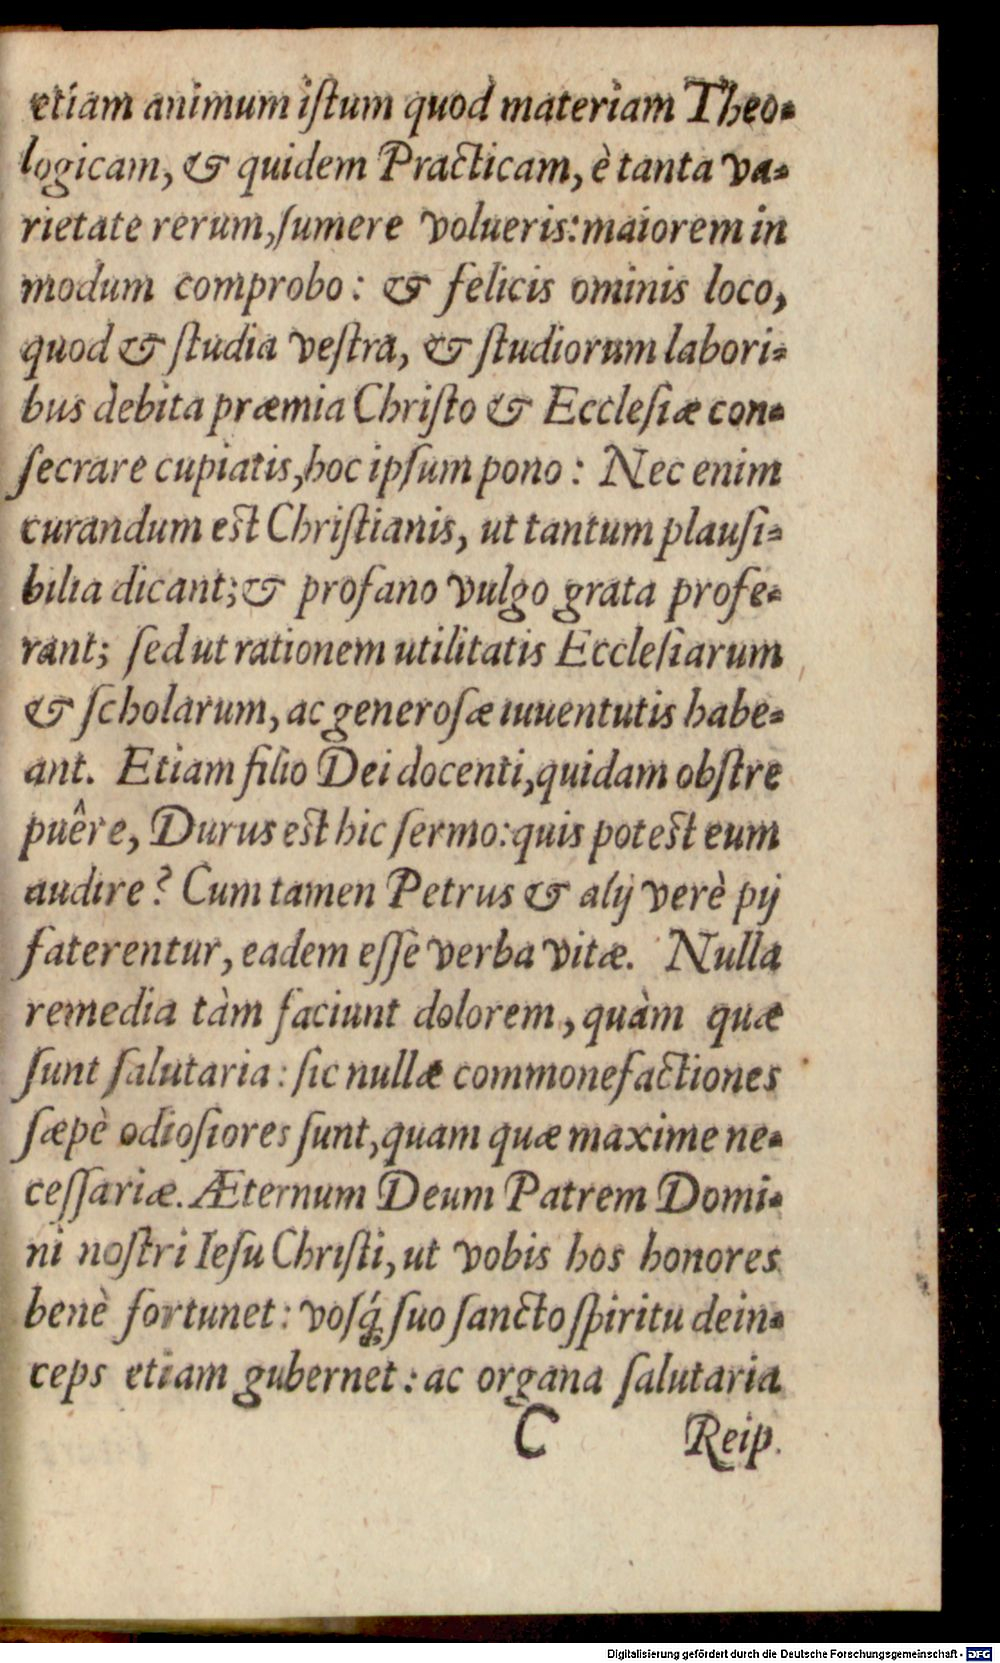 etiam animum iſtum quod materiam Theo-
logicam, & quidem Practicam, è tanta va-
rietate rerum, ſumere volueris: maiorem in
modum comprobo: & felicis ominis loco,
quod & ſtudia veſtra, & ſtudiorum labori-
bus debita præmia Chriſto & Eccleſiæ con-
ſecrare cupiatis, hoc ipſum pono: Nec enim
curandum eſt Chriſtianis, ut tantum plauſi-
bilia dicant; & profano vulgo grata profe-
rant; ſed ut rationem utilitatis Eccleſiarum
& ſcholarum, ac generoſæ iuuentutis habe-
ant. Etiam filio Dei docenti, quidam obſtre
puêre, Durus eſt hic ſermo: quis poteſt eum
audire? Cum tamen Petrus & alij verè pij
faterentur, eadem eſſe verba vitæ. Nulla
remedia tàm faciunt dolorem, quàm quæ
ſunt ſalutaria: ſic nullæ commonefactiones
ſæpè odioſiores ſunt, quam quæ maxime ne-
ceſſariæ. Æternum Deum Patrem Domi-
ni noſtri Ieſu Chriſti, ut vobis hos honores
benè fortunet: voſq́; ſuo ſancto ſpiritu dein-
ceps etiam gubernet: ac organa ſalutaria
C Reip.
Digitalisierung gefördert durch die Deutsche Forschungsgemeinschaft - DFG